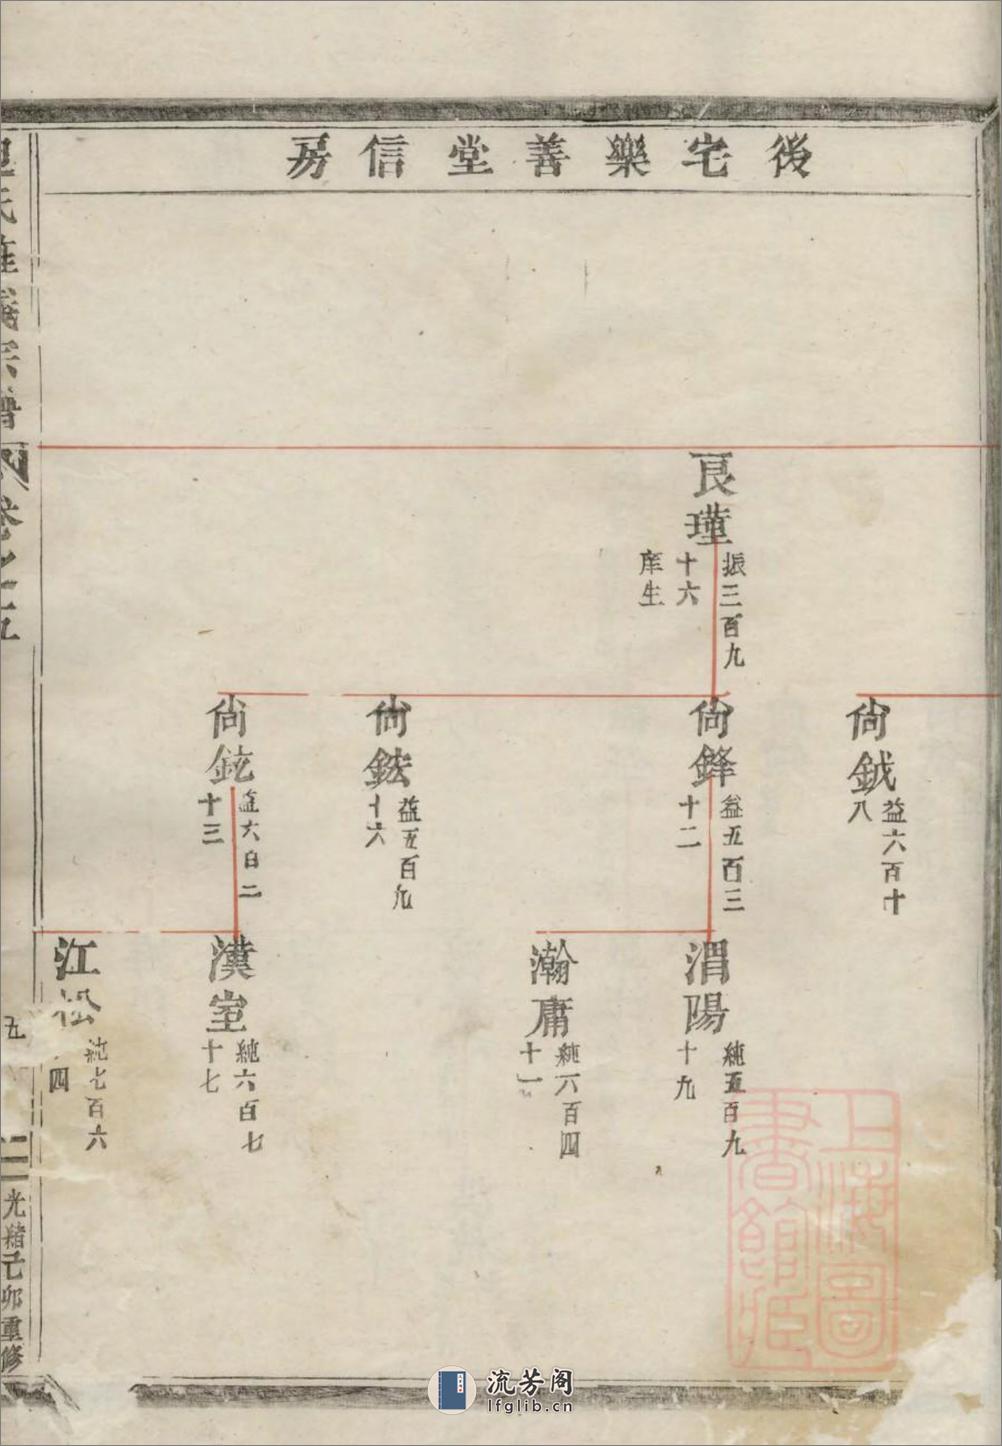 後宅樂善堂信房
良瑾
振三百九
十六
庠生
尙鉞
益六百十
八
尙鋒
益五百三
十二
尙鍅
益五百九
十六
尙鉉
益六百二
十三
渭陽
純五百九
十九
瀚庸
純六百四
十一
漢室
純六百七
十七
江松
純七百六
四
氏
義宗譜
卷之五
五
光緒己卯重修
上海圖
書館藏
流芳阁
lfglib.cn